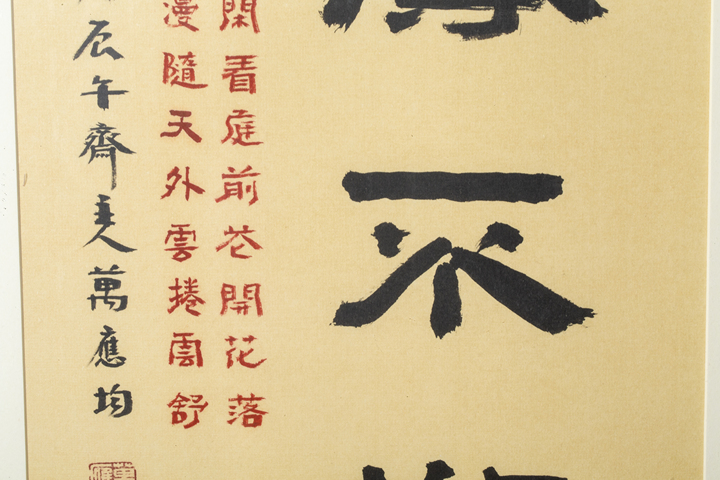 不
閑看庭前花開花落
漫隨天外雲捲雲舒
辰午齋主人萬應均